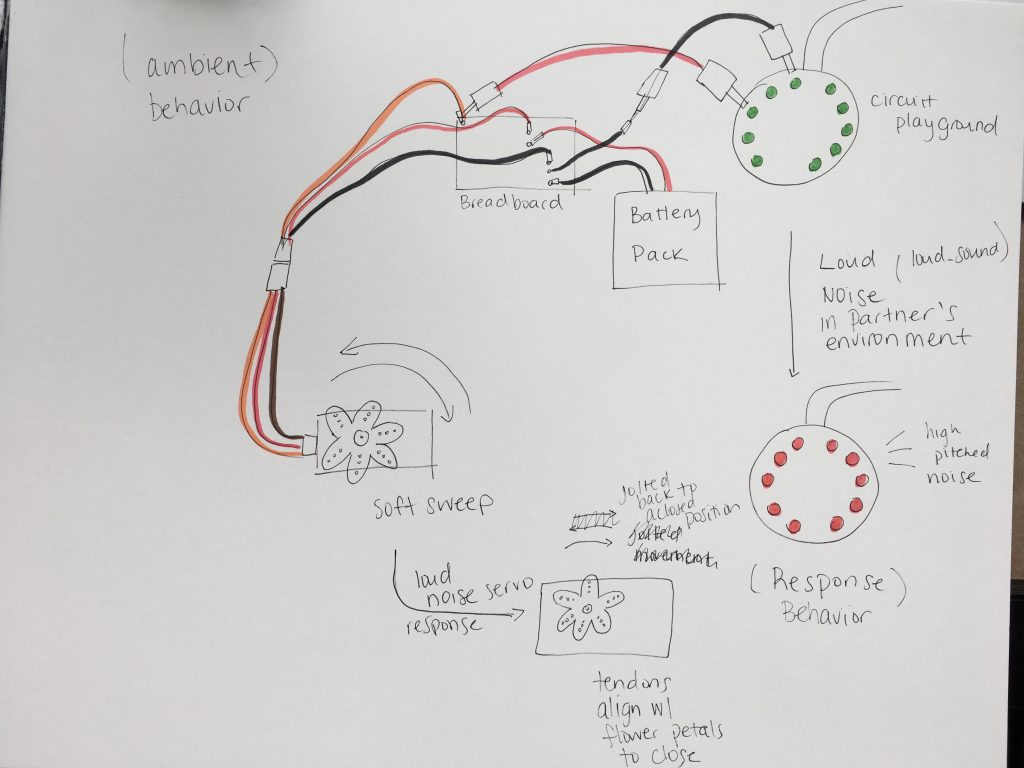 (ambient)
behavior
Breadboard
Battery
Pack
circuit
playground
Loud (loud_sound)
Noise
in Partner's
environment
high
pitched
noise
(Response)
Behavior
soft sweep
Jolted
back to
a closed
position
movement
loud
noise servo
response
tendons
align w/
flower petals
to close